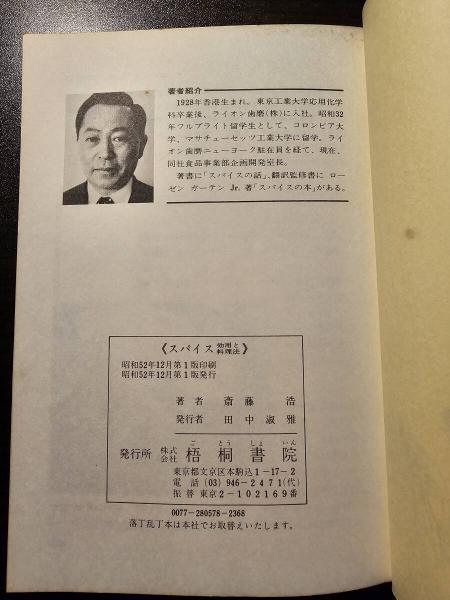 著者紹介
1928年香港生まれ。東京工業大学応用化学
科卒業後、ライオン歯磨(株)に入社。昭和32
年フルブライト留学生として、コロンビア大
学、マサチューセッツ工業大学に留学。ライ
オン歯磨ニューヨーク駐在員を経て、現在、
同社食品事業部企画開発室長。
著書に「スパイスの話」、翻訳監修書に ロー
ゼン ガーテン Jr. 著「スパイスの本」がある。
《スパイス 効用と料理法》
昭和52年12月第1版印刷
昭和52年12月第1版発行
著者 斎藤 浩
発行者 田中淑雅
ごとうしょいん
発行所 株式会社 梧桐書院
東京都文京区本駒込1-17-2
電話 (03) 946-2471(代)
振替 東京2-102169番
0077-280578-2368
落丁乱丁本は本社でお取替えいたします。